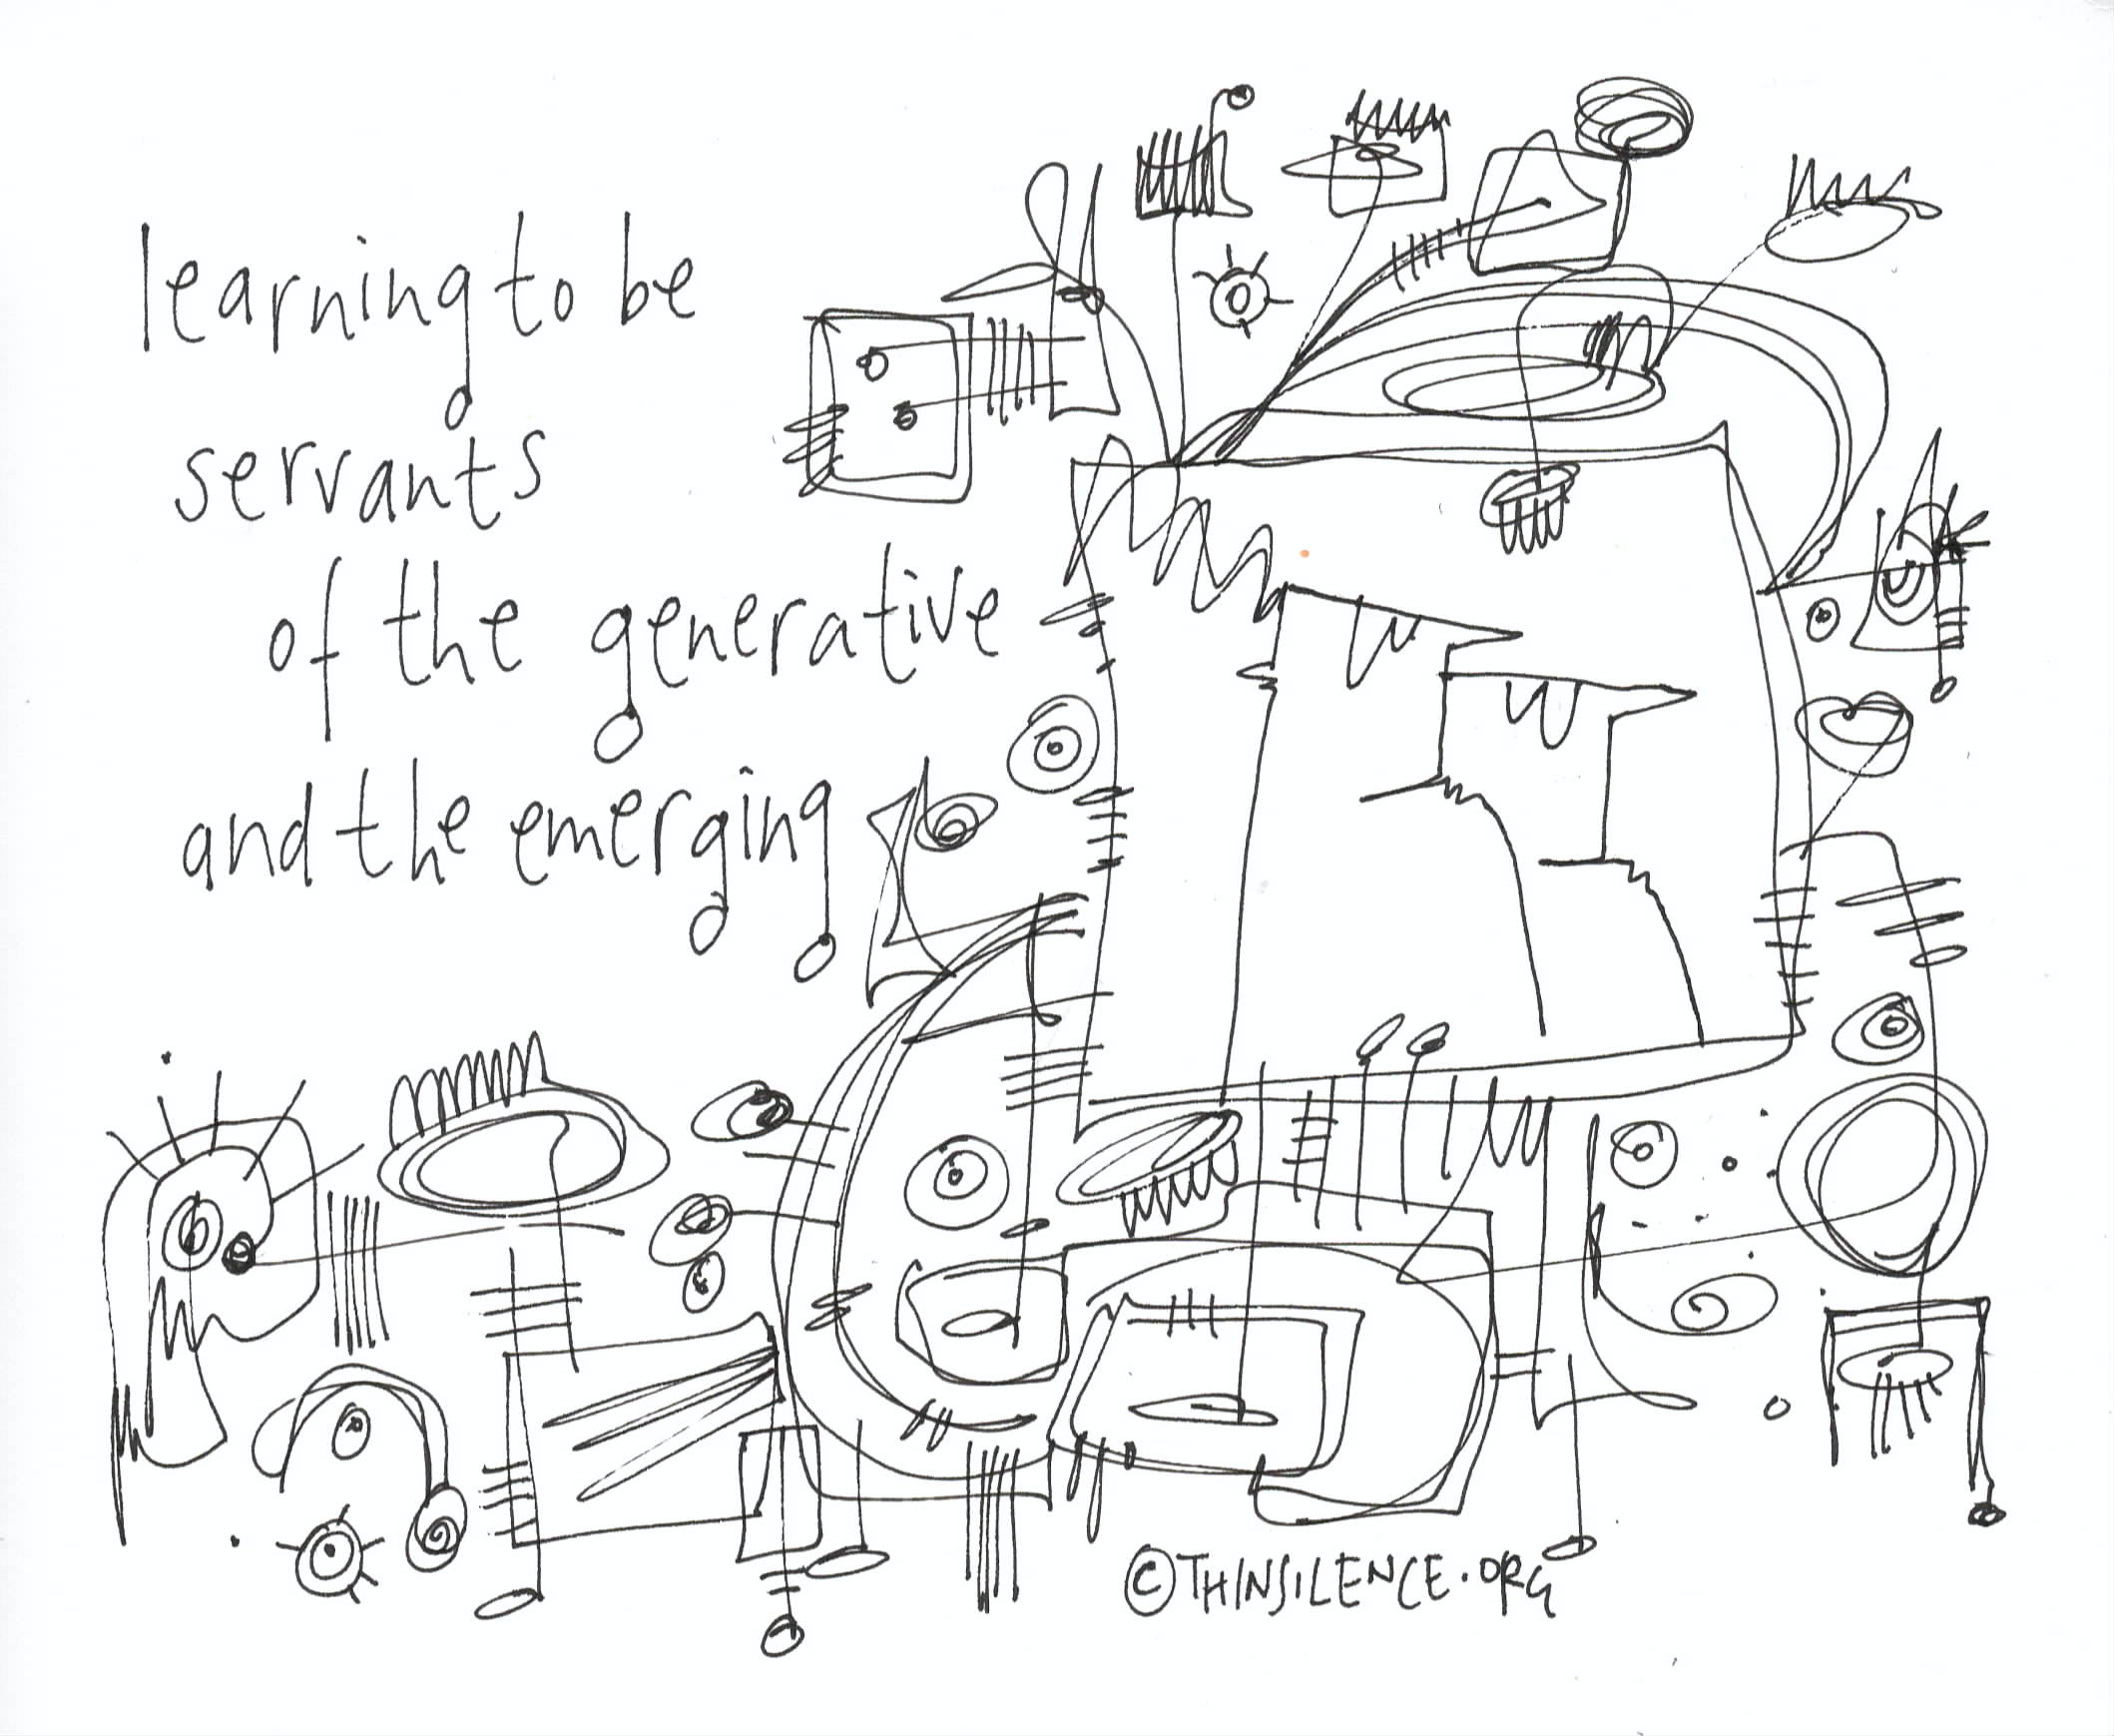 learning to be
servants
of the generative
and the emerging
©THINSILENCE.ORG